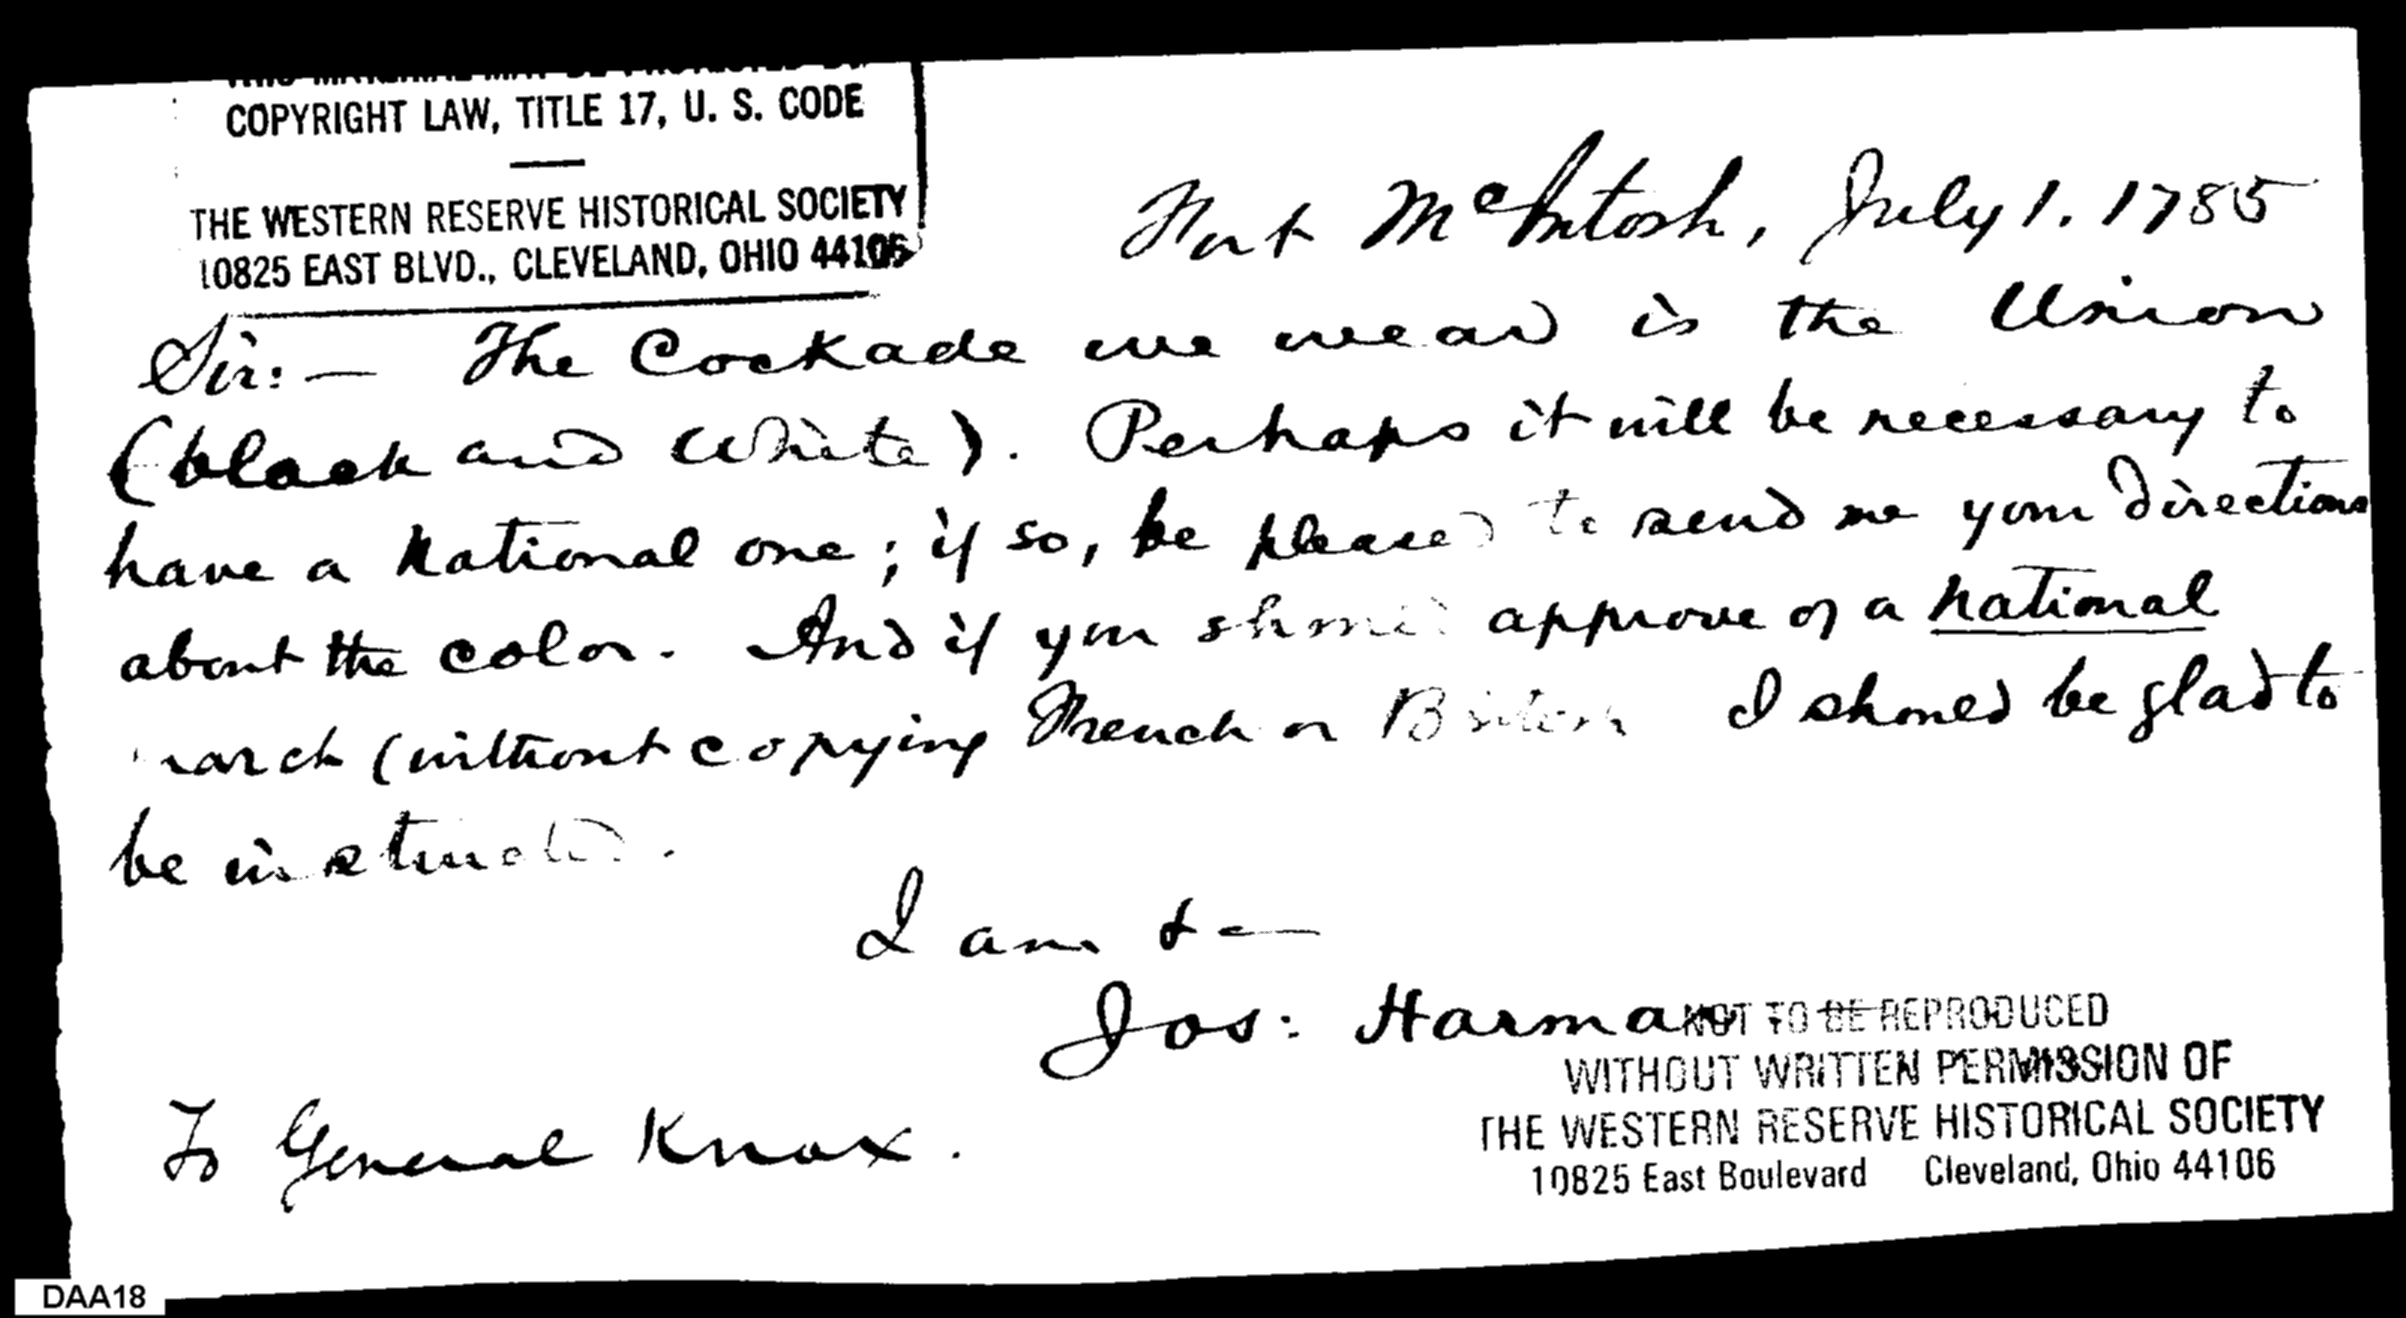 COPYRIGHT LAW, TITLE 17, U. S. CODE
THE WESTERN RESERVE HISTORICAL SOCIETY
10825 EAST BLVD., CLEVELAND, OHIO 44106
Fort McIntosh, July 1. 1785
Sir:— The Cockade we wear is the Union
(black and White). Perhaps it will be necessary to
have a National one; if so, be pleased to send me your directions
about the color. And if you should approve of a National
march (without copying French or British I should be glad to
be instructed.
I am &c—
Jos: Harmar
NOT TO BE REPRODUCED
WITHOUT WRITTEN PERMISSION OF
THE WESTERN RESERVE HISTORICAL SOCIETY
10825 East Boulevard Cleveland, Ohio 44106
To General Knox.
DAA18